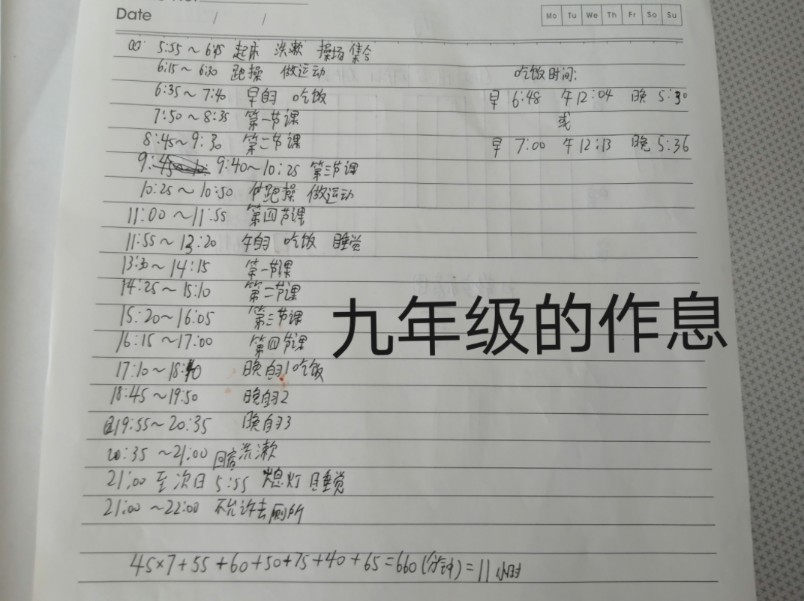 Date / /
Mo Tu We Th Fr Sa Su
5:55~6:15 起床 洗漱 操场集合
6:15~6:30 跑操 做运动
吃饭时间:
6:35~7:40 早自习 吃饭
早 6:48 午12:04 晚 5:30
7:50~8:35 第一节课
或
8:45~9:30 第二节课
早 7:00 午12:13 晚 5:36
9:40~10:25 第三节课
10:25~10:50 跑操 做运动
11:00~11:55 第四节课
11:55~13:20 午自习 吃饭 睡觉
13:30~14:15 第一节课
14:25~15:10 第二节课
15:20~16:05 第三节课
16:15~17:00 第四节课
九年级的作息
17:10~18: 晚自习1吃饭
18:45~19:50 晚自习2
19:55~20:35 晚自习3
20:35~21:00 回宿 洗漱
21:00 至次日 5:55 熄灯 睡觉
21:00~22:00 不允许去厕所
45×7+55+60+50+75+40+65=660(分钟)=11小时